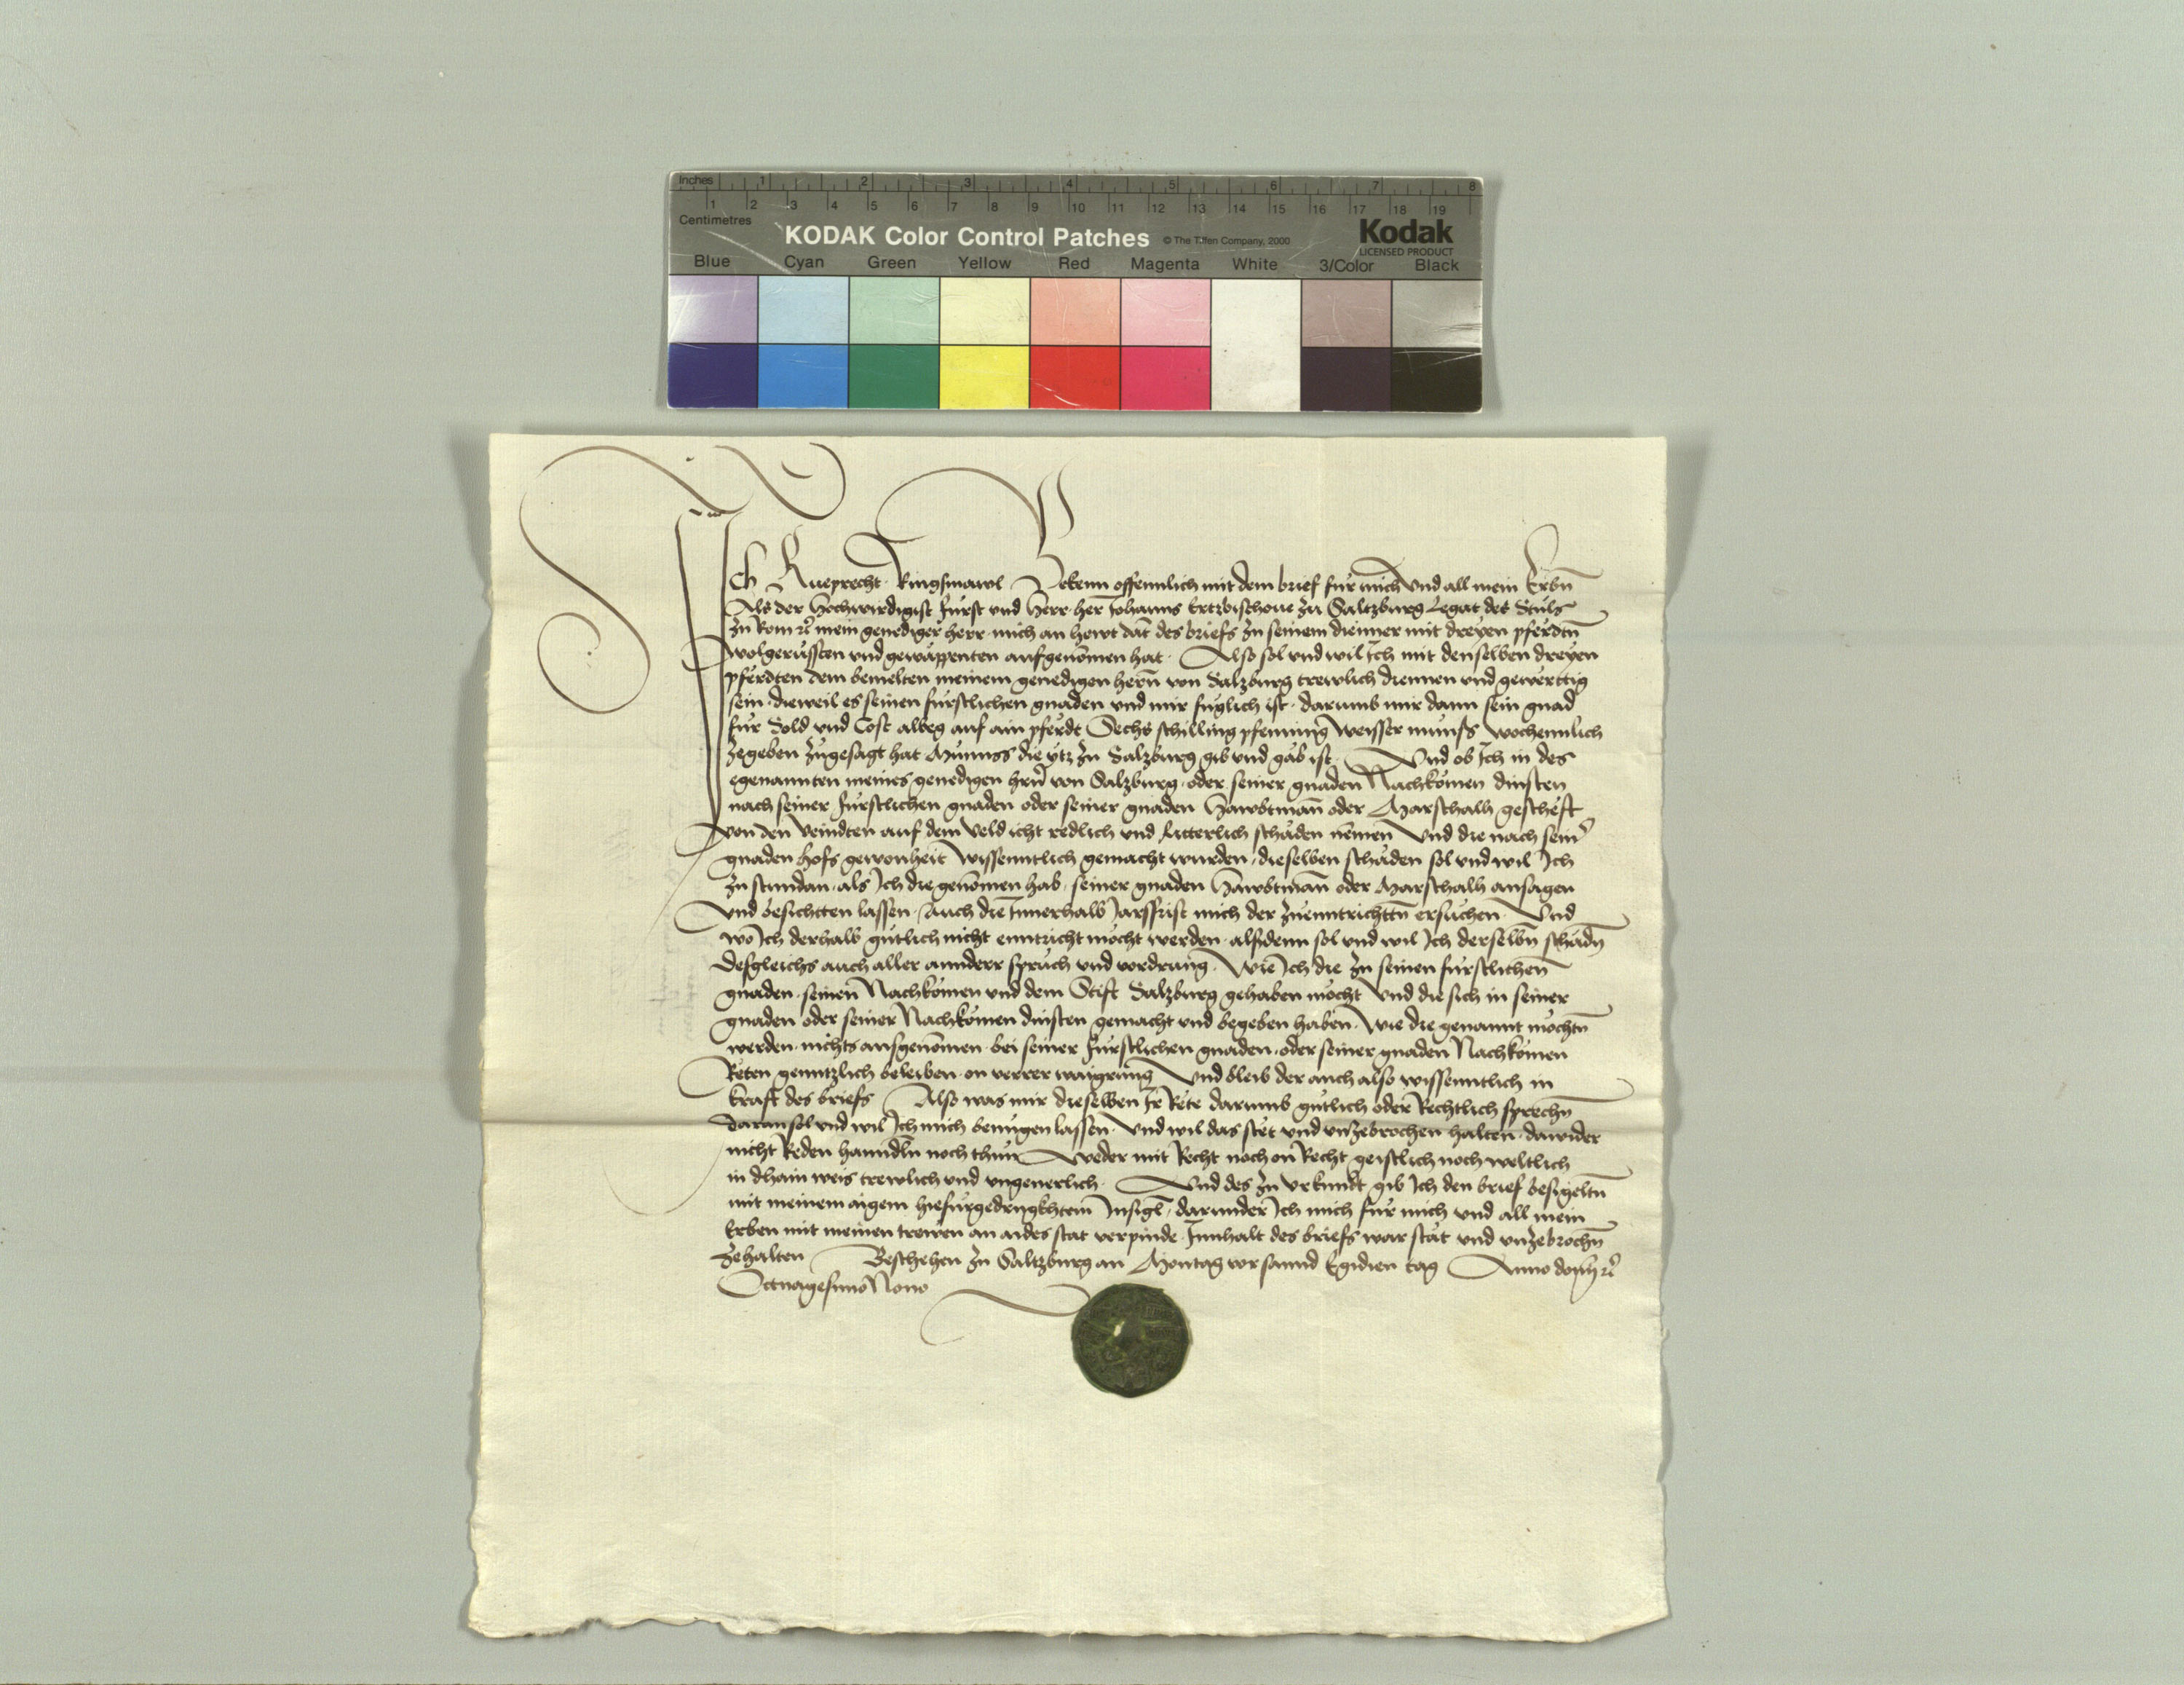 Inches 1 2 3 4 5 6 7 8
1 2 3 4 5 6 7 8 9 10 11 12 13 14 15 16 17 18 19
Centimetres
KODAK Color Control Patches © The Tiffen Company, 2000 Kodak
LICENSED PRODUCT
Blue Cyan Green Yellow Red Magenta White 3/Color Black
Ich Rueprecht kingsmawl Bekenn offennlich mit dem brief fur mich Und all mein Erbn̄
Als der Hochwirdigist furst und Herr her Johanns Ertzbischoue zu Saltzburg Legat des Stuls
zu Rom ꝛc̄ mein genediger herr mich an hewt dat des briefs zu seinem dienner mit dreyen pferdtn̄
wolgerussten vnd gewappenten aufgenomen hat. Also sol vnd wil Ich mit denselben dreyen
pferdten dem bemelten meinem genedigen hern̄ von Salzburg trewlich diennen vnd gewerttig
sein dieweil es seinen furstlichen gnaden vnd mir fuglich ist. darumb mir dann sein gnad
fur Sold vnd Cost albeg auf ain pferdt Sechs schilling pfenning weisser munss wochennlich
zegeben zugesagt hat Munnss die ytz zu Salzburg gib vnd gab ist. Vnd ob Ich in des
egenannten meines genedigen hrn̄ von Salzburg oder seiner gnaden Nachkomen dinsten
nach seiner furstlichen gnaden oder seiner gnaden Hawbtman̄ oder Marschalh gescheft
von den veindten auf dem veld icht redlich und Ritterlich schaden nemen Vnd die nach sein̄
gnaden hofs gewonheit wissenntlich gemacht wurden, dieselben schaden sol vnd wil Ich
zu stundan, als Ich die genomen hab, seiner gnaden Hawbtman̄ oder Marschalh ansagen
Vnd besichtten lassen. Auch die Innerhalb Jarssfrist mich der zuenntrichttn̄ ersuchen Vnd
wo Ich derhalb gutlich nicht enntricht mocht werden. alssdenn sol vnd wil Ich derselbn̄ schadn̄
dessgleichs auch aller annderr spruch vnd vordrung. Wie Ich die zu seinen furstlichen̄
gnaden seinen Nachkomen vnd dem Stift Salzburg gehaben mocht Vnd die sich in seiner
gnaden oder seiner Nachkomen dinsten gemacht vnd begeben haben. Wie die genannt mochtn̄
werden. nichts ausgenomen. bei seiner furstlichen gnaden. oder seiner gnaden Nachkomen
Reten genntzlich beleiben. on verrer waigrung Vnd bleib der auch also wissenntlich in
krafft des briefs Also was mir dieselben Ir Rete darumb gutlich oder Rechtlich sprechn̄
daran sol vnd wil Ich mich benugen lassen. Vnd wil das stet vnd vnzebrochen halten. dawider
nicht Reden hanndln̄ noch thun Weder mit Recht noch on Recht geistlich noch weltlich
in dhain weis trewlich vnd vngeuerlich. Vnd des zu vrkundt gib Ich den brief besigeltn̄
mit meinem aigem hiefurgedrugkhtem Insigl, darunder Ich mich fur mich vnd all mein
Erben mit meinen trewen an aides stat verpinde Innhalt des briefs war stat vnd vnzebrochn̄
zehalten Beschehen zu Saltzburg an Montag vor sannd Egidien tag Anno dom̄ ꝛc̄
Octuagesimo Nono